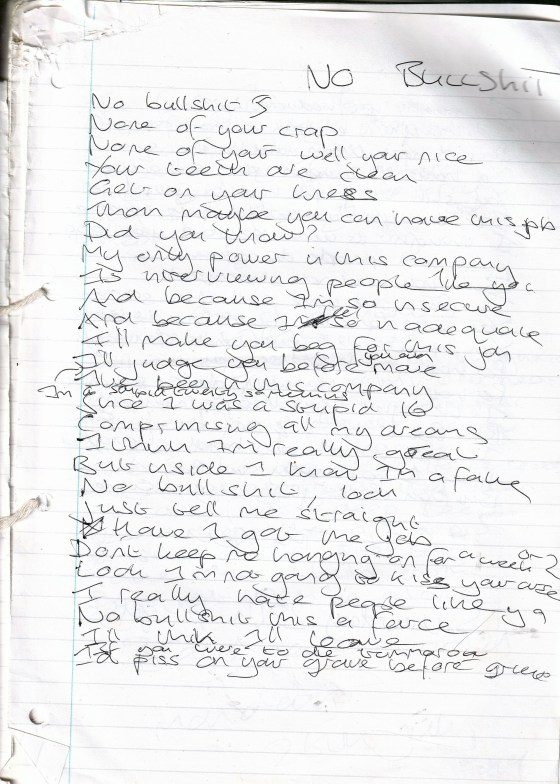 No Bullshit
No bullshit
None of your crap
None of your well your nice
Your teeth are clean
Get on your knees
Then maybe you can have this job
Did you know?
My only power in this company
Is interviewing people like you
And because I'm so insecure
And because I so inadequate
I'll make you beg for this job
I'll judge you before you even move
I've been in this company
In a stupid twenty something
Since I was a stupid 16
Compromising all my dreams
I think I'm really great
But inside I know Im a fake
No bullshit, look
Just tell me straight
Have I got the job
Dont keep me hanging on for a week or 2
Look I'm not going to kiss your arse
I really hate people like ya
No bullshit this a farce
I'll think I'll leave
If you were to die tommorow
I'd piss on your grave before